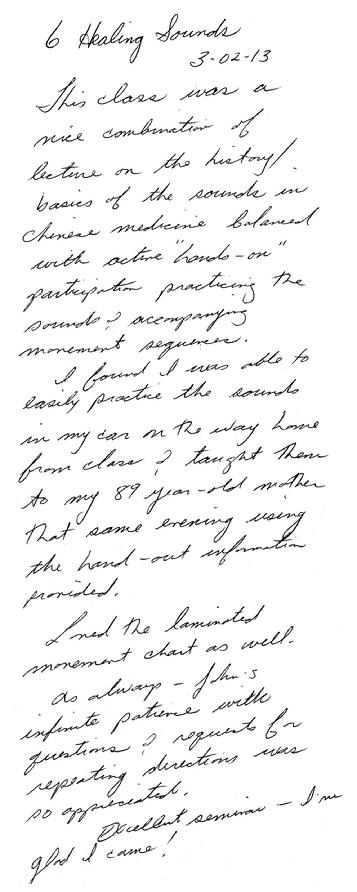 6 Healing Sounds
3-02-13
This class was a
nice combination of
lecture on the history/
basics of the sounds in
Chinese medicine balanced
with active "hands-on"
participation practicing the
sounds & accompanying
movement sequences.
I found I was able to
easily practice the sounds
in my car on the way home
from class & taught them
to my 89 year-old mother
that same evening using
the hand-out information
provided.
Loved the laminated
movement chart as well.
As always - John's
infinite patience with
questions & requests for
repeating directions was
so appreciated.
Excellent seminar - I'm
glad I came!